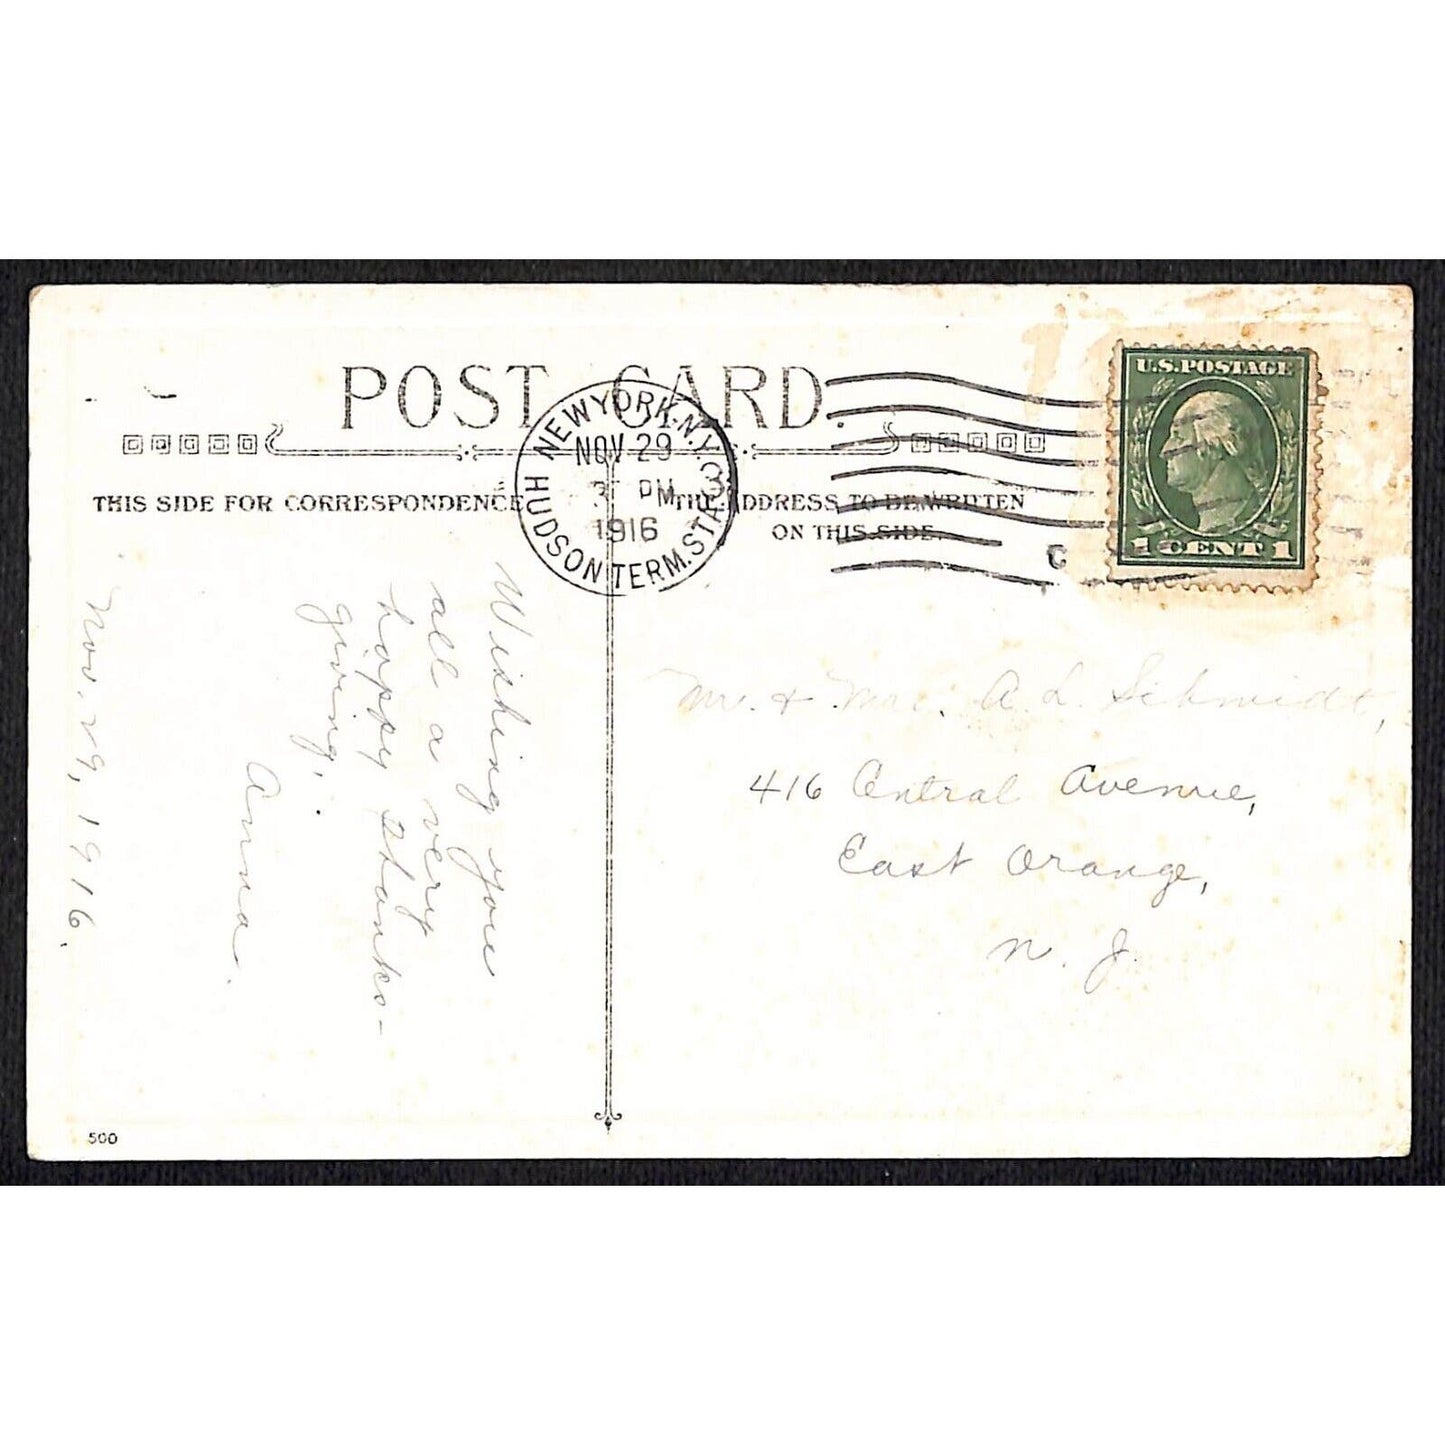 POST CARD.
U.S. POSTAGE
1 CENT 1
NEW YORK, N.Y. 3
NOV 29
3 PM
1916
HUDSON TERM. STA.
C
THIS SIDE FOR CORRESPONDENCE
THE ADDRESS TO BE WRITTEN
ON THIS SIDE.
Nov. 29, 1916.
Wishing you
all a very
happy Thanks-
giving.
Anna.
Mr. & Mrs. A. L. Schmidt,
416 Central Avenue,
East Orange,
N. J.
500